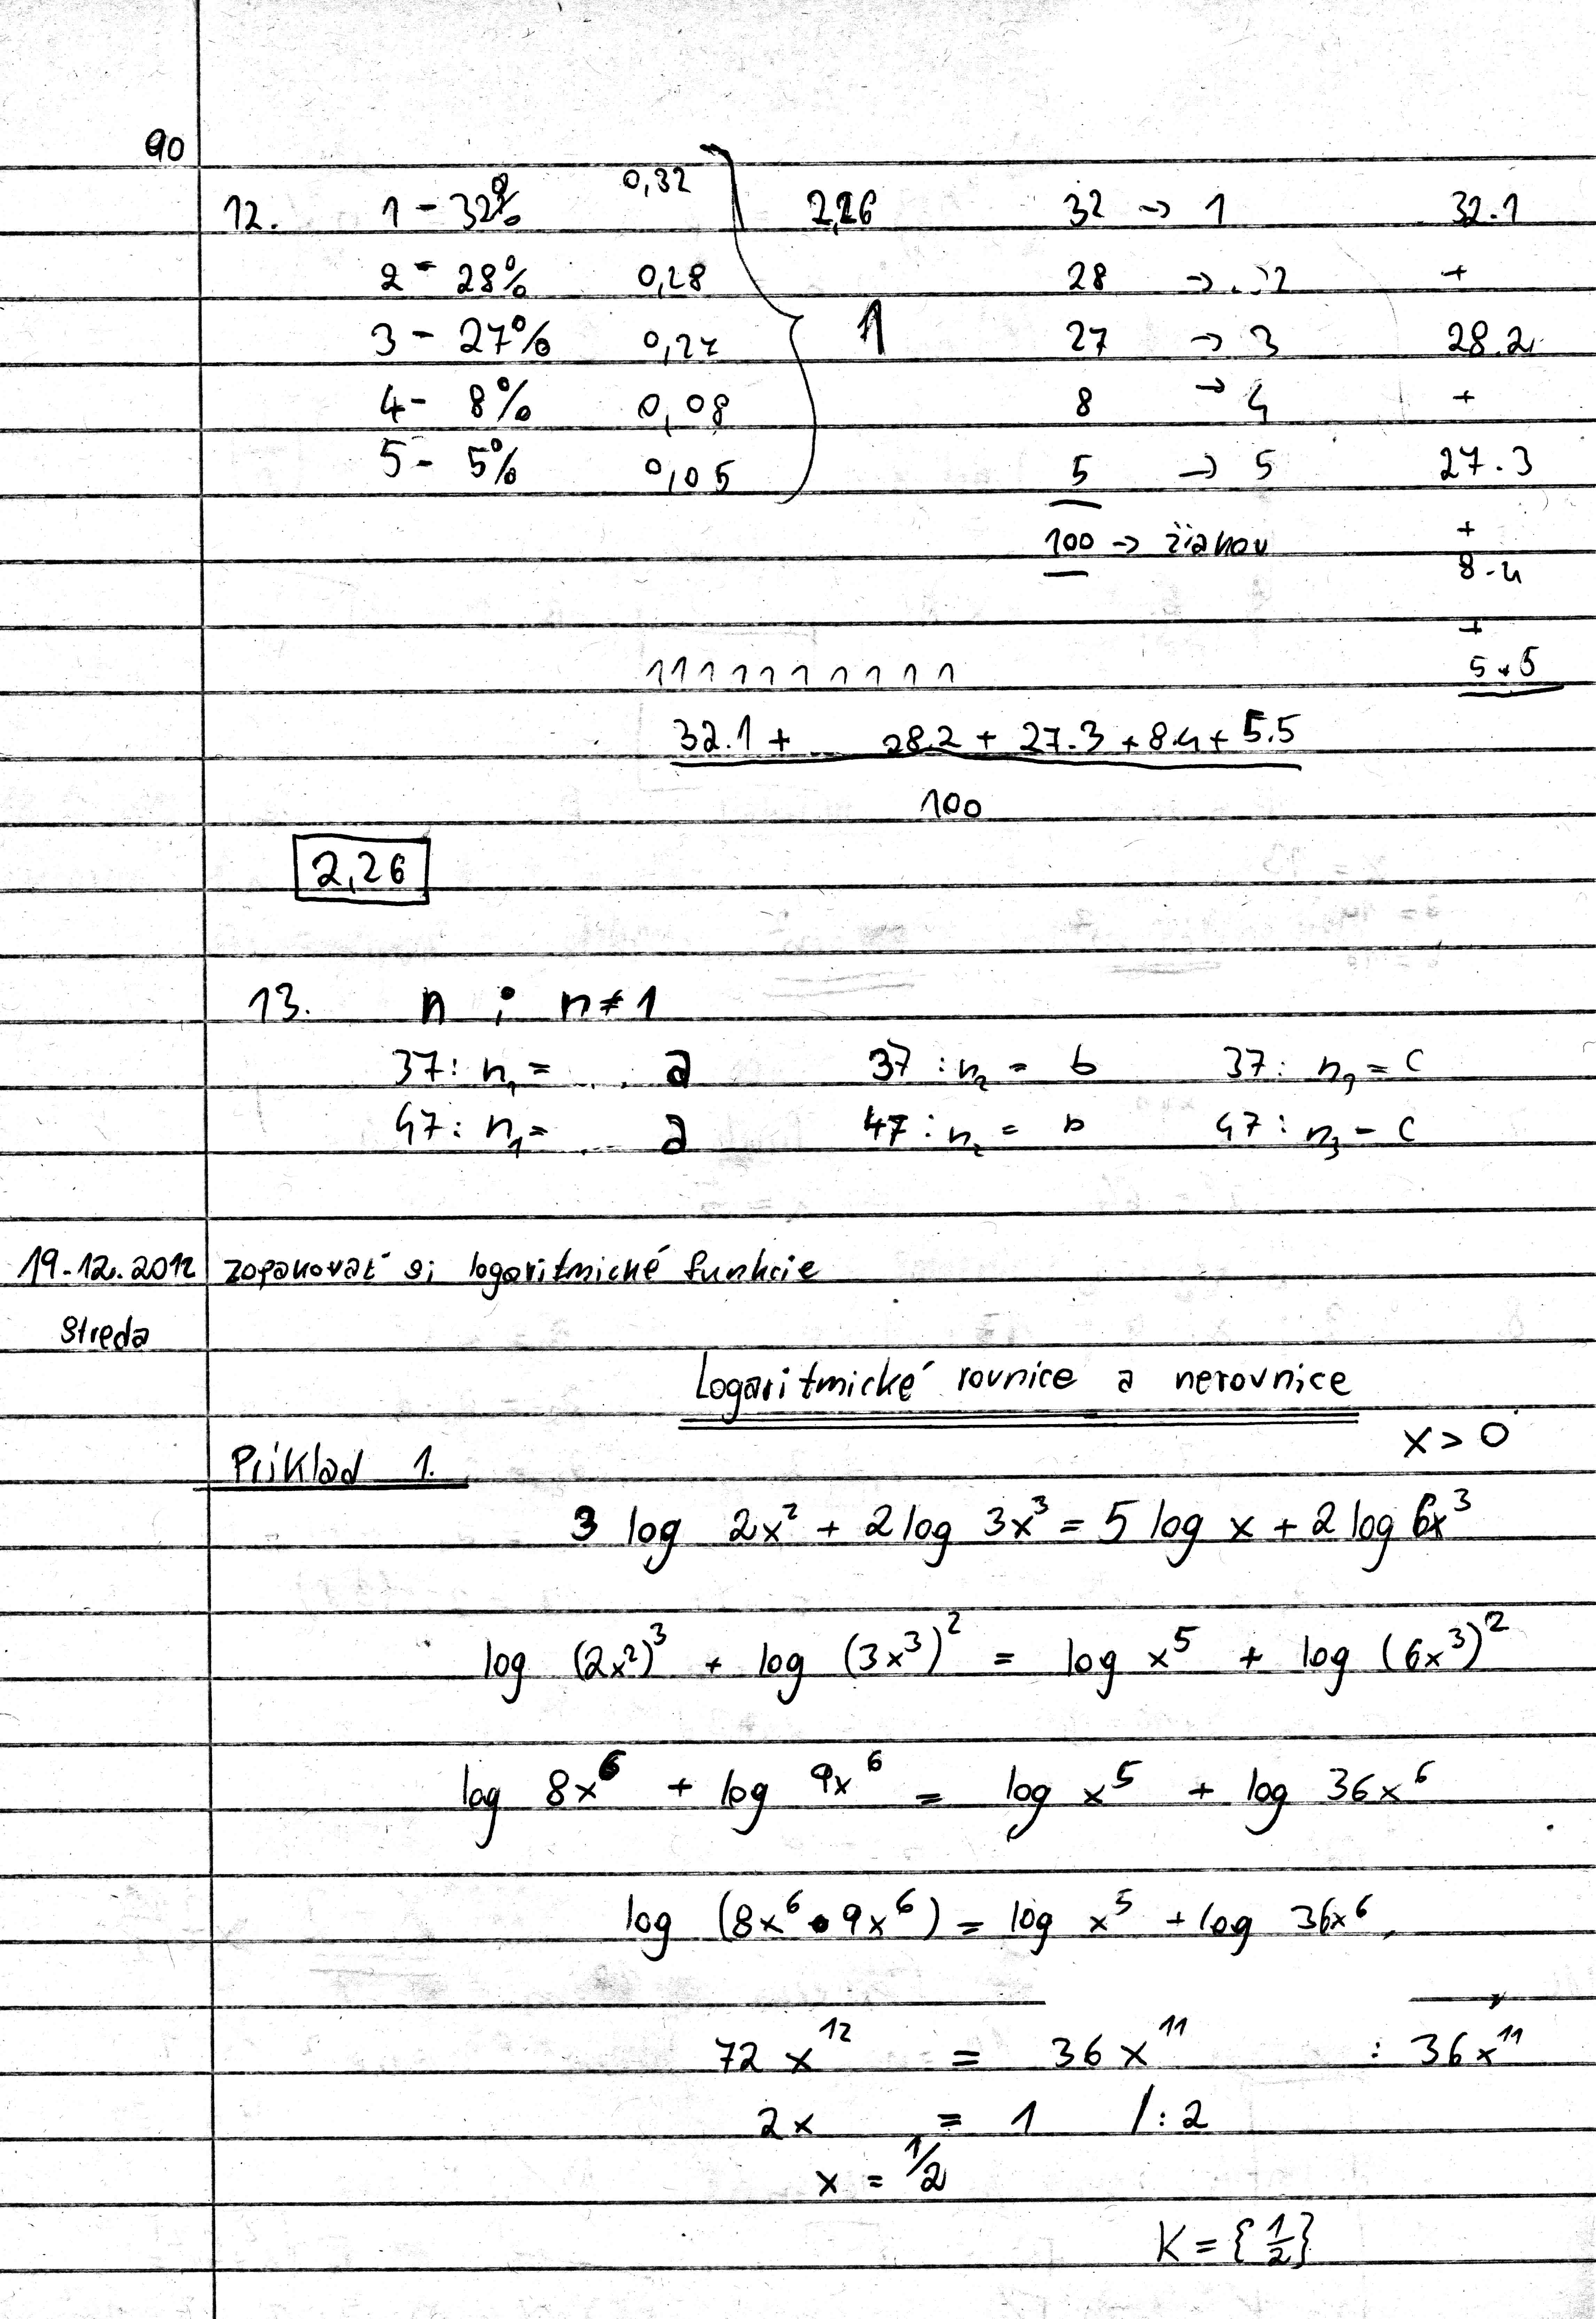 90
12. 1 - 32% 0,32 2,26 32 → 1 32.1
2 - 28% 0,28 28 → 2 +
3 - 27% 0,27 1 27 → 3 28.2
4 - 8% 0,08 8 → 4 +
5 - 5% 0,05 5 → 5 27.3
100 → žiakov +
8.4
+
1 1 1 1 1 1 1 1 1 1 1 5.5
32.1 + ... 28.2 + 27.3 + 8.4 + 5.5
100
2,26
13. n ; n ≠ 1
37 : n₁ = ... a 37 : n₂ = b 37 : n₃ = c
47 : n₁ = ... a 47 : n₂ = b 47 : n₃ = c
19.12.2012 zopakovať si logaritmické funkcie
Streda
Logaritmické rovnice a nerovnice
x > 0
Príklad 1.
3 log 2x² + 2 log 3x³ = 5 log x + 2 log 6x³
log (2x²)³ + log (3x³)² = log x⁵ + log (6x³)²
log 8x⁶ + log 9x⁶ = log x⁵ + log 36x⁶
log (8x⁶ • 9x⁶) = log x⁵ + log 36x⁶
72x¹² = 36x¹¹ : 36x¹¹
2x = 1 / : 2
x = 1/2
K = {1/2}